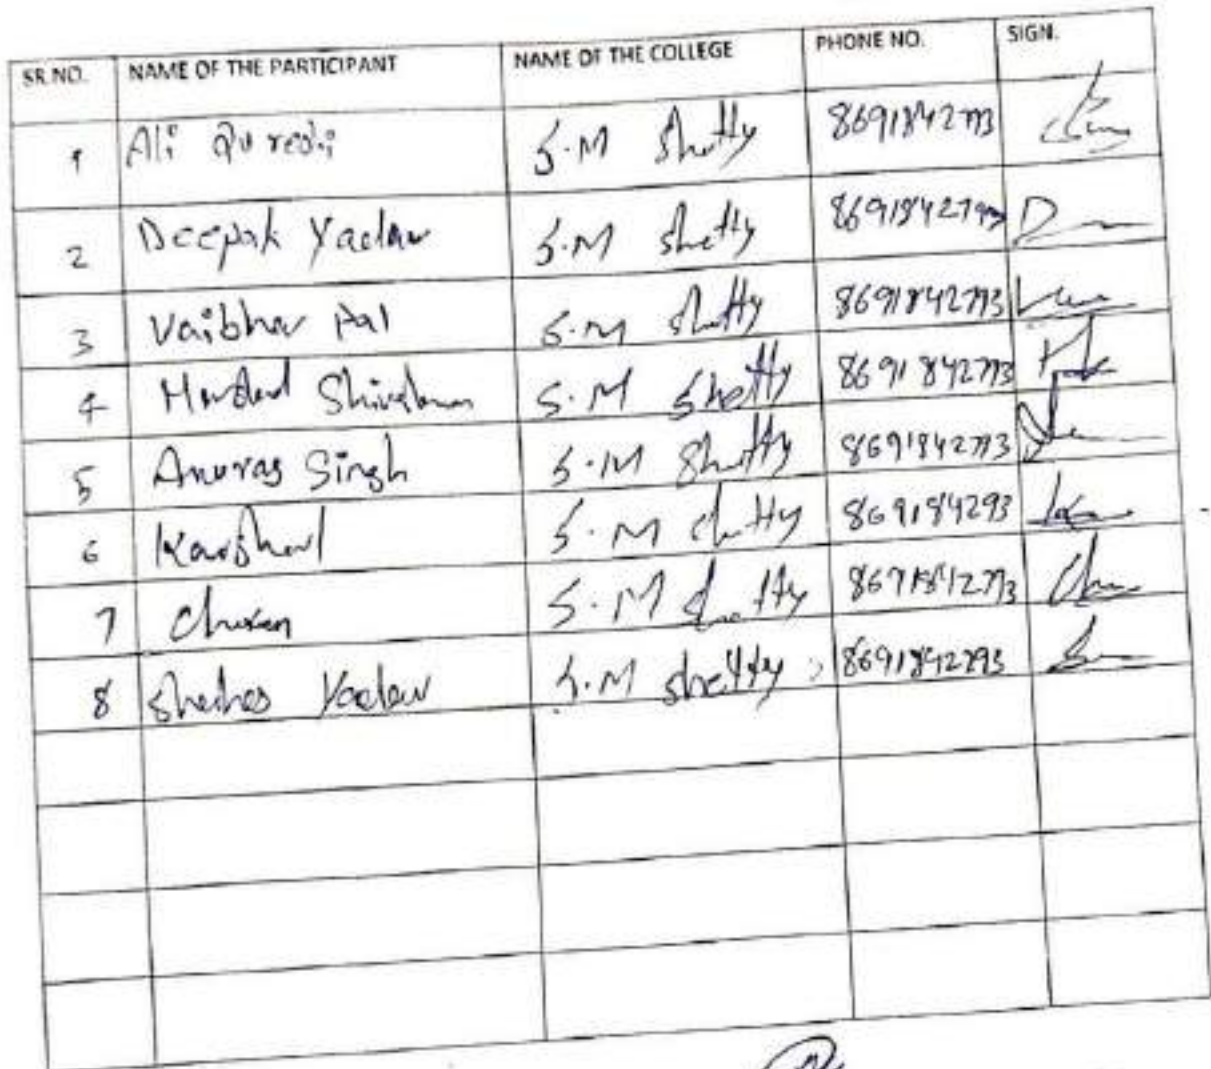 SR.NO. NAME OF THE PARTICIPANT NAME OF THE COLLEGE PHONE NO. SIGN.
1 Ali Qureshi S.M Shetty 8691842793
2 Deepak Yadav S.M Shetty 8691842793
3 Vaibhav Pal S.M Shetty 8691842793
4 S.M Shetty 8691842793
5 Anurag Singh S.M Shetty 8691842793
6 Kaushal S.M Shetty 869184293
7 S.M Shetty 8691842793
8 Yadav S.M Shetty 8691842793